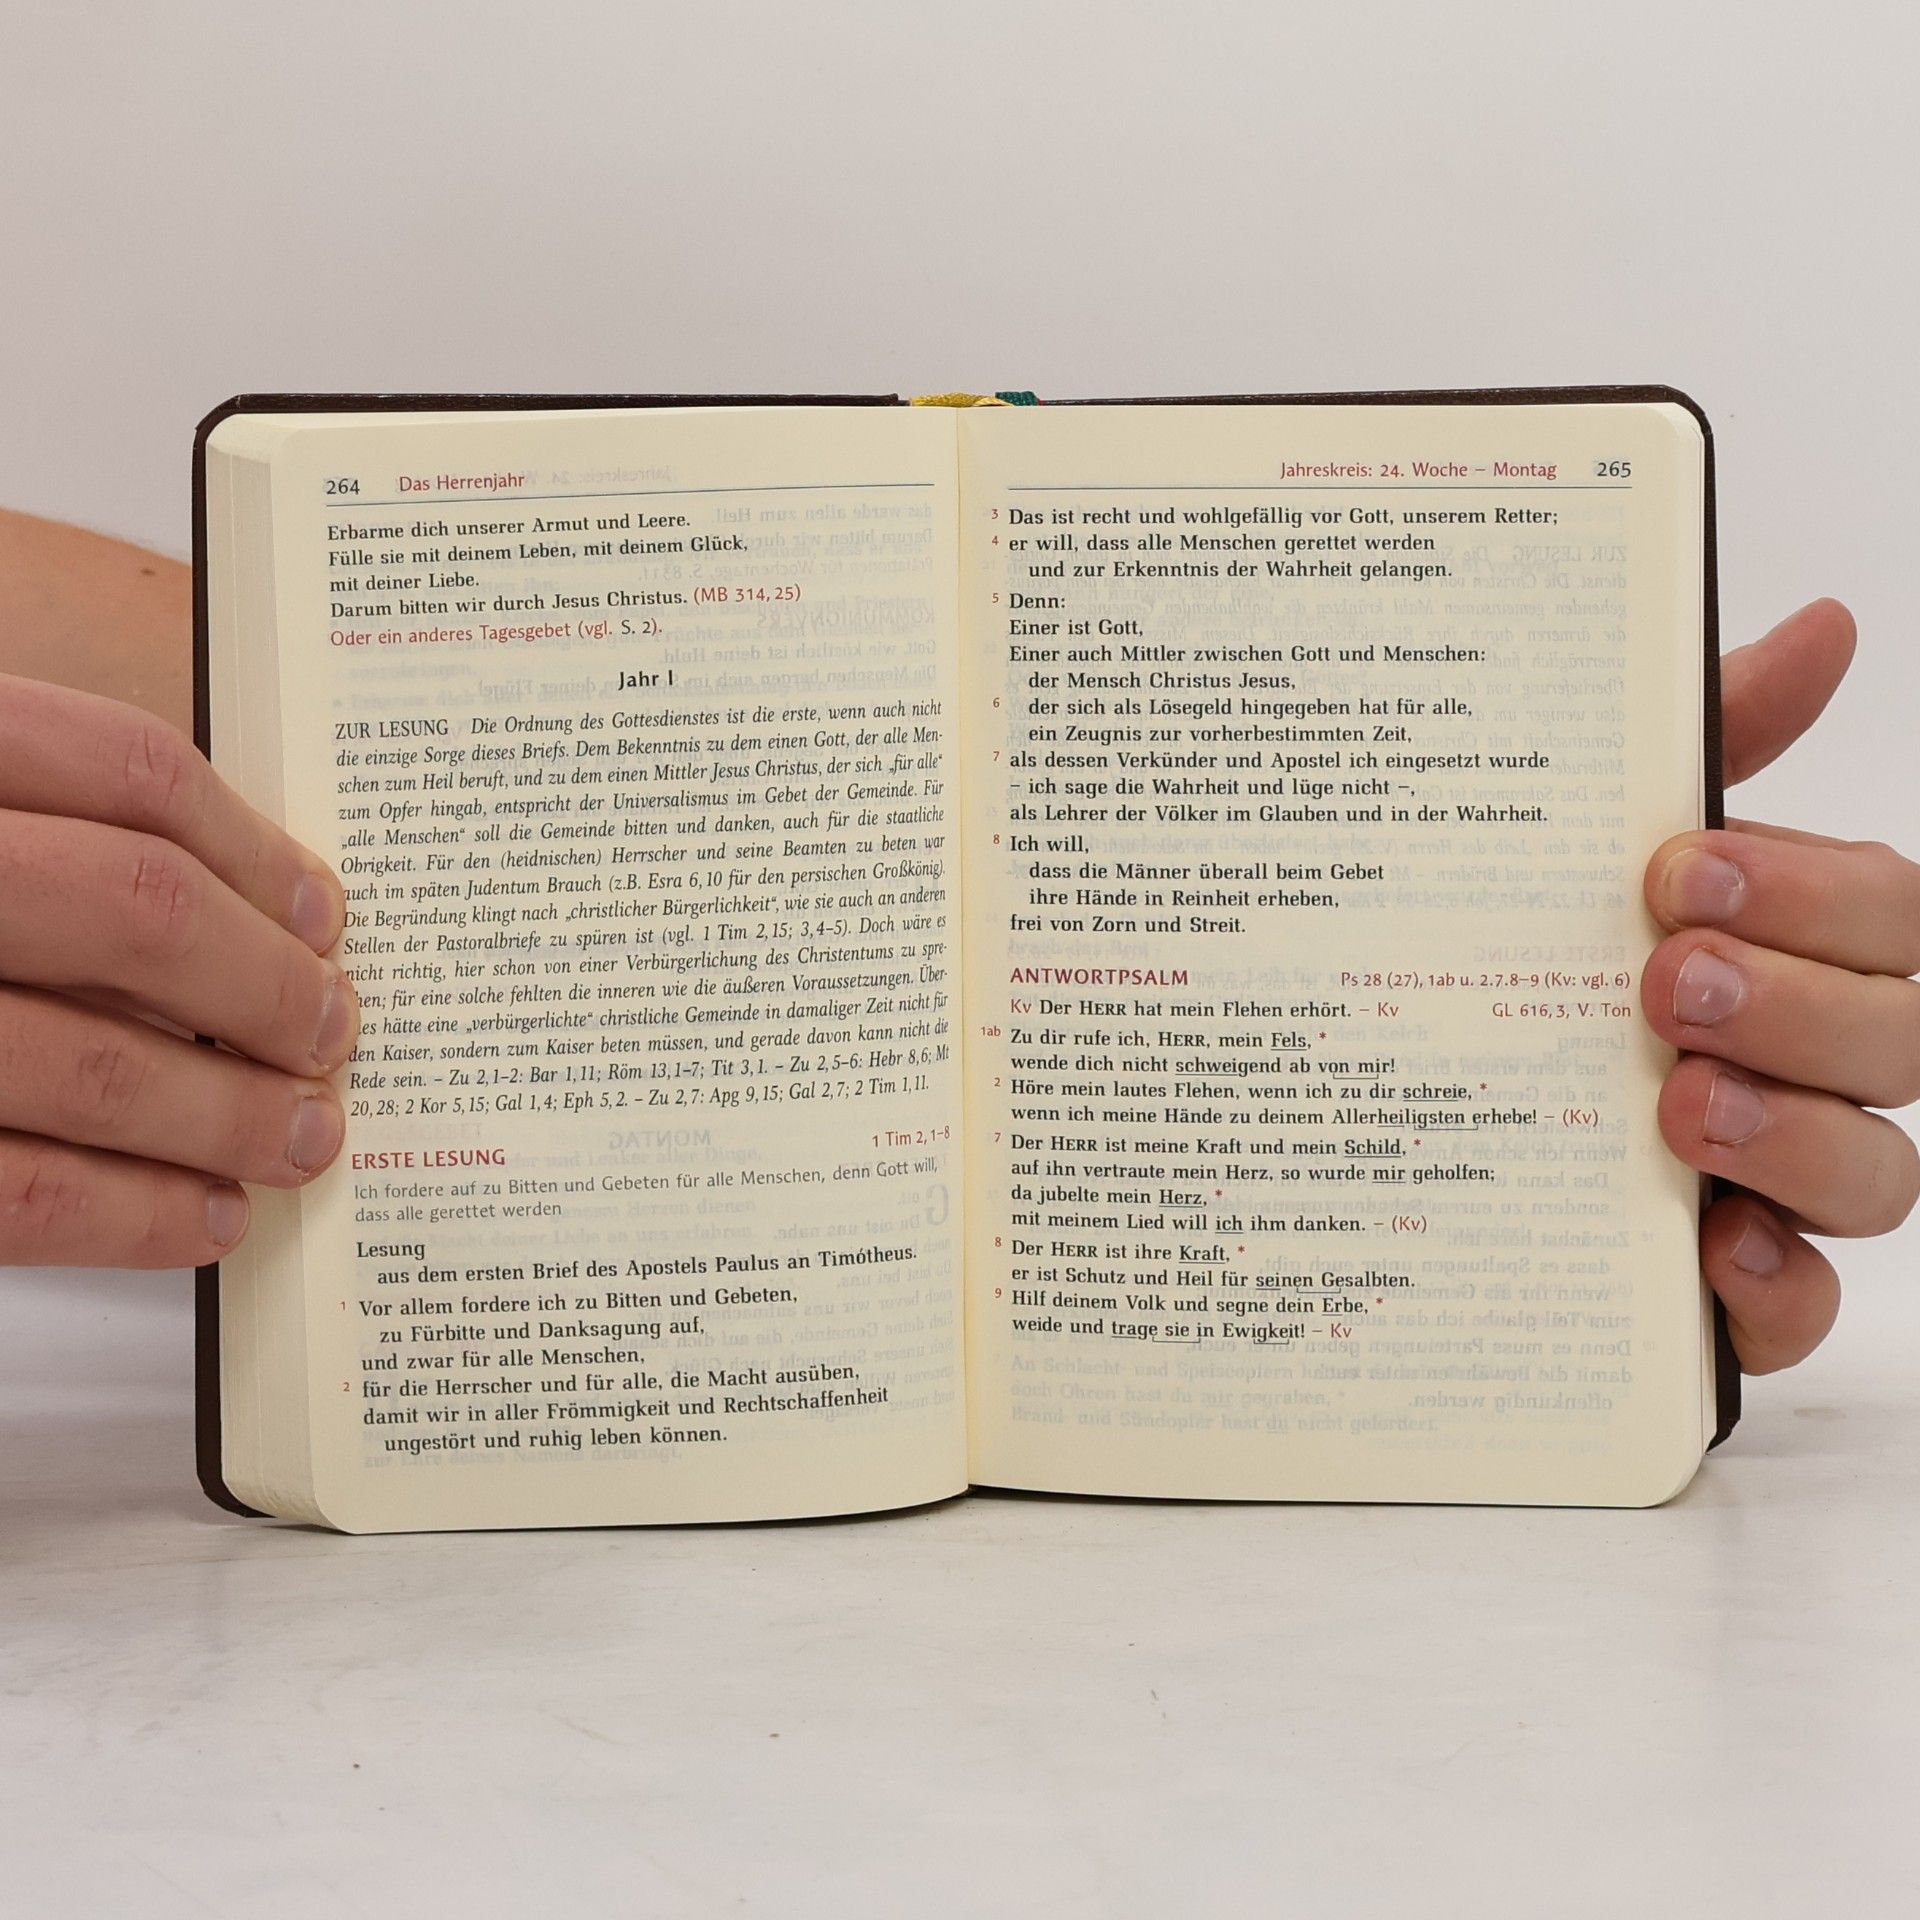 264 Das Herrenjahr
Erbarme dich unserer Armut und Leere.
Fülle sie mit deinem Leben, mit deinem Glück,
mit deiner Liebe.
Darum bitten wir durch Jesus Christus. (MB 314, 25)
Oder ein anderes Tagesgebet (vgl. S. 2).
Jahr I
ZUR LESUNG Die Ordnung des Gottesdienstes ist die erste, wenn auch nicht
die einzige Sorge dieses Briefs. Dem Bekenntnis zu dem einen Gott, der alle Men-
schen zum Heil beruft, und zu dem einen Mittler Jesus Christus, der sich „für alle“
zum Opfer hingab, entspricht der Universalismus im Gebet der Gemeinde. Für
„alle Menschen“ soll die Gemeinde bitten und danken, auch für die staatliche
Obrigkeit. Für den (heidnischen) Herrscher und seine Beamten zu beten war
auch im späten Judentum Brauch (z.B. Esra 6, 10 für den persischen Großkönig).
Die Begründung klingt nach „christlicher Bürgerlichkeit“, wie sie auch an anderen
Stellen der Pastoralbriefe zu spüren ist (vgl. 1 Tim 2, 15; 3, 4–5). Doch wäre es
nicht richtig, hier schon von einer Verbürgerlichung des Christentums zu spre-
hen; für eine solche fehlten die inneren wie die äußeren Voraussetzungen. Über-
es hätte eine „verbürgerlichte“ christliche Gemeinde in damaliger Zeit nicht für
den Kaiser, sondern zum Kaiser beten müssen, und gerade davon kann nicht die
Rede sein. – Zu 2, 1–2: Bar 1, 11; Röm 13, 1–7; Tit 3, 1. – Zu 2, 5–6: Hebr 8, 6; Mt
20, 28; 2 Kor 5, 15; Gal 1, 4; Eph 5, 2. – Zu 2, 7: Apg 9, 15; Gal 2, 7; 2 Tim 1, 11.
ERSTE LESUNG 1 Tim 2, 1–8
Ich fordere auf zu Bitten und Gebeten für alle Menschen, denn Gott will,
dass alle gerettet werden
Lesung
aus dem ersten Brief des Apostels Paulus an Timótheus.
1 Vor allem fordere ich zu Bitten und Gebeten,
zu Fürbitte und Danksagung auf,
und zwar für alle Menschen,
2 für die Herrscher und für alle, die Macht ausüben,
damit wir in aller Frömmigkeit und Rechtschaffenheit
ungestört und ruhig leben können.
Jahreskreis: 24. Woche – Montag 265
3 Das ist recht und wohlgefällig vor Gott, unserem Retter;
4 er will, dass alle Menschen gerettet werden
und zur Erkenntnis der Wahrheit gelangen.
5 Denn:
Einer ist Gott,
Einer auch Mittler zwischen Gott und Menschen:
der Mensch Christus Jesus,
6 der sich als Lösegeld hingegeben hat für alle,
ein Zeugnis zur vorherbestimmten Zeit,
7 als dessen Verkünder und Apostel ich eingesetzt wurde
– ich sage die Wahrheit und lüge nicht –,
als Lehrer der Völker im Glauben und in der Wahrheit.
8 Ich will,
dass die Männer überall beim Gebet
ihre Hände in Reinheit erheben,
frei von Zorn und Streit.
ANTWORTPSALM Ps 28 (27), 1ab u. 2.7.8–9 (Kv: vgl. 6)
Kv Der HERR hat mein Flehen erhört. – Kv GL 616, 3, V. Ton
1ab Zu dir rufe ich, HERR, mein Fels, *
wende dich nicht schweigend ab von mir!
2 Höre mein lautes Flehen, wenn ich zu dir schreie, *
wenn ich meine Hände zu deinem Allerheiligsten erhebe! – (Kv)
7 Der HERR ist meine Kraft und mein Schild, *
auf ihn vertraute mein Herz, so wurde mir geholfen;
da jubelte mein Herz, *
mit meinem Lied will ich ihm danken. – (Kv)
8 Der HERR ist ihre Kraft, *
er ist Schutz und Heil für seinen Gesalbten.
9 Hilf deinem Volk und segne dein Erbe, *
weide und trage sie in Ewigkeit! – Kv